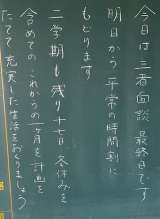 今日は三者面談 最終日です
明日から 平常の時間割に
もどります
二学期も残り十七日 冬休みを
含めての これからの一ヶ月を 計画を
たてて 充実した生活をおくりましょう